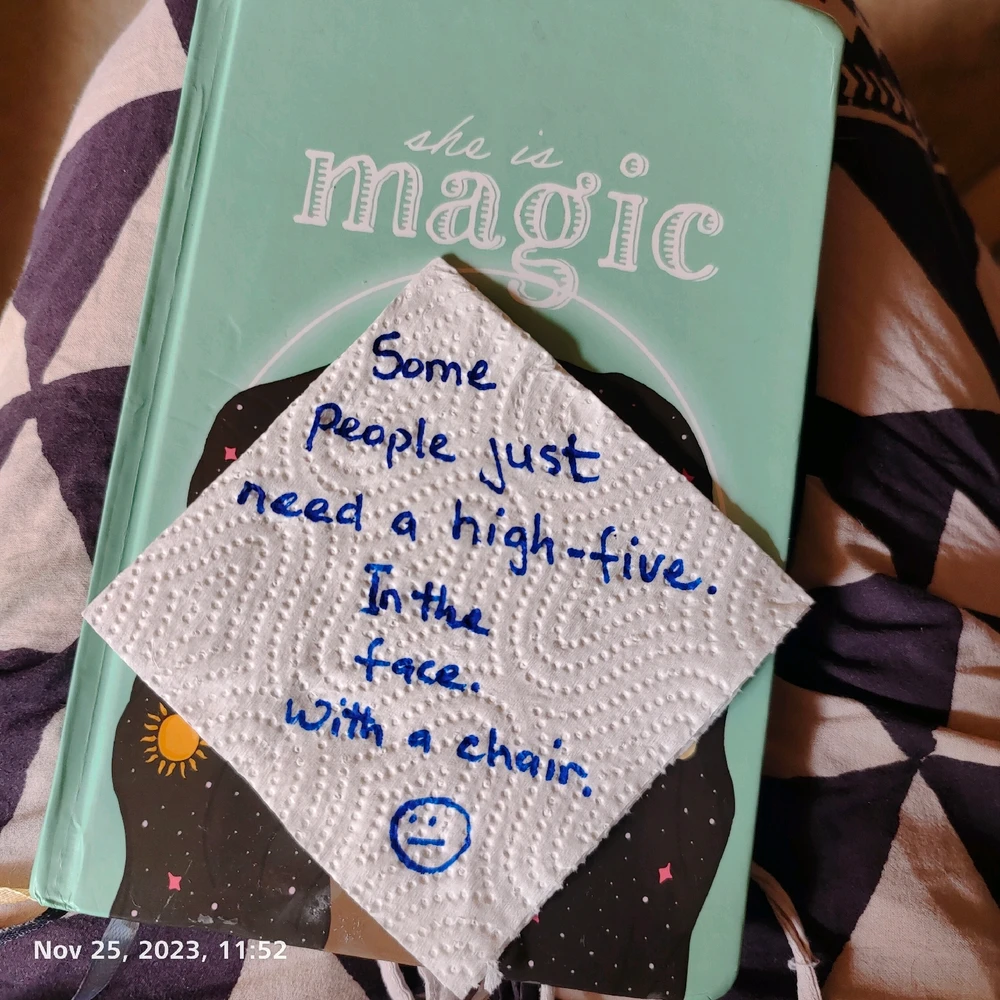 she is
magic
Some
people just
need a high-five.
In the
face.
With a chair.
Nov 25, 2023, 11:52